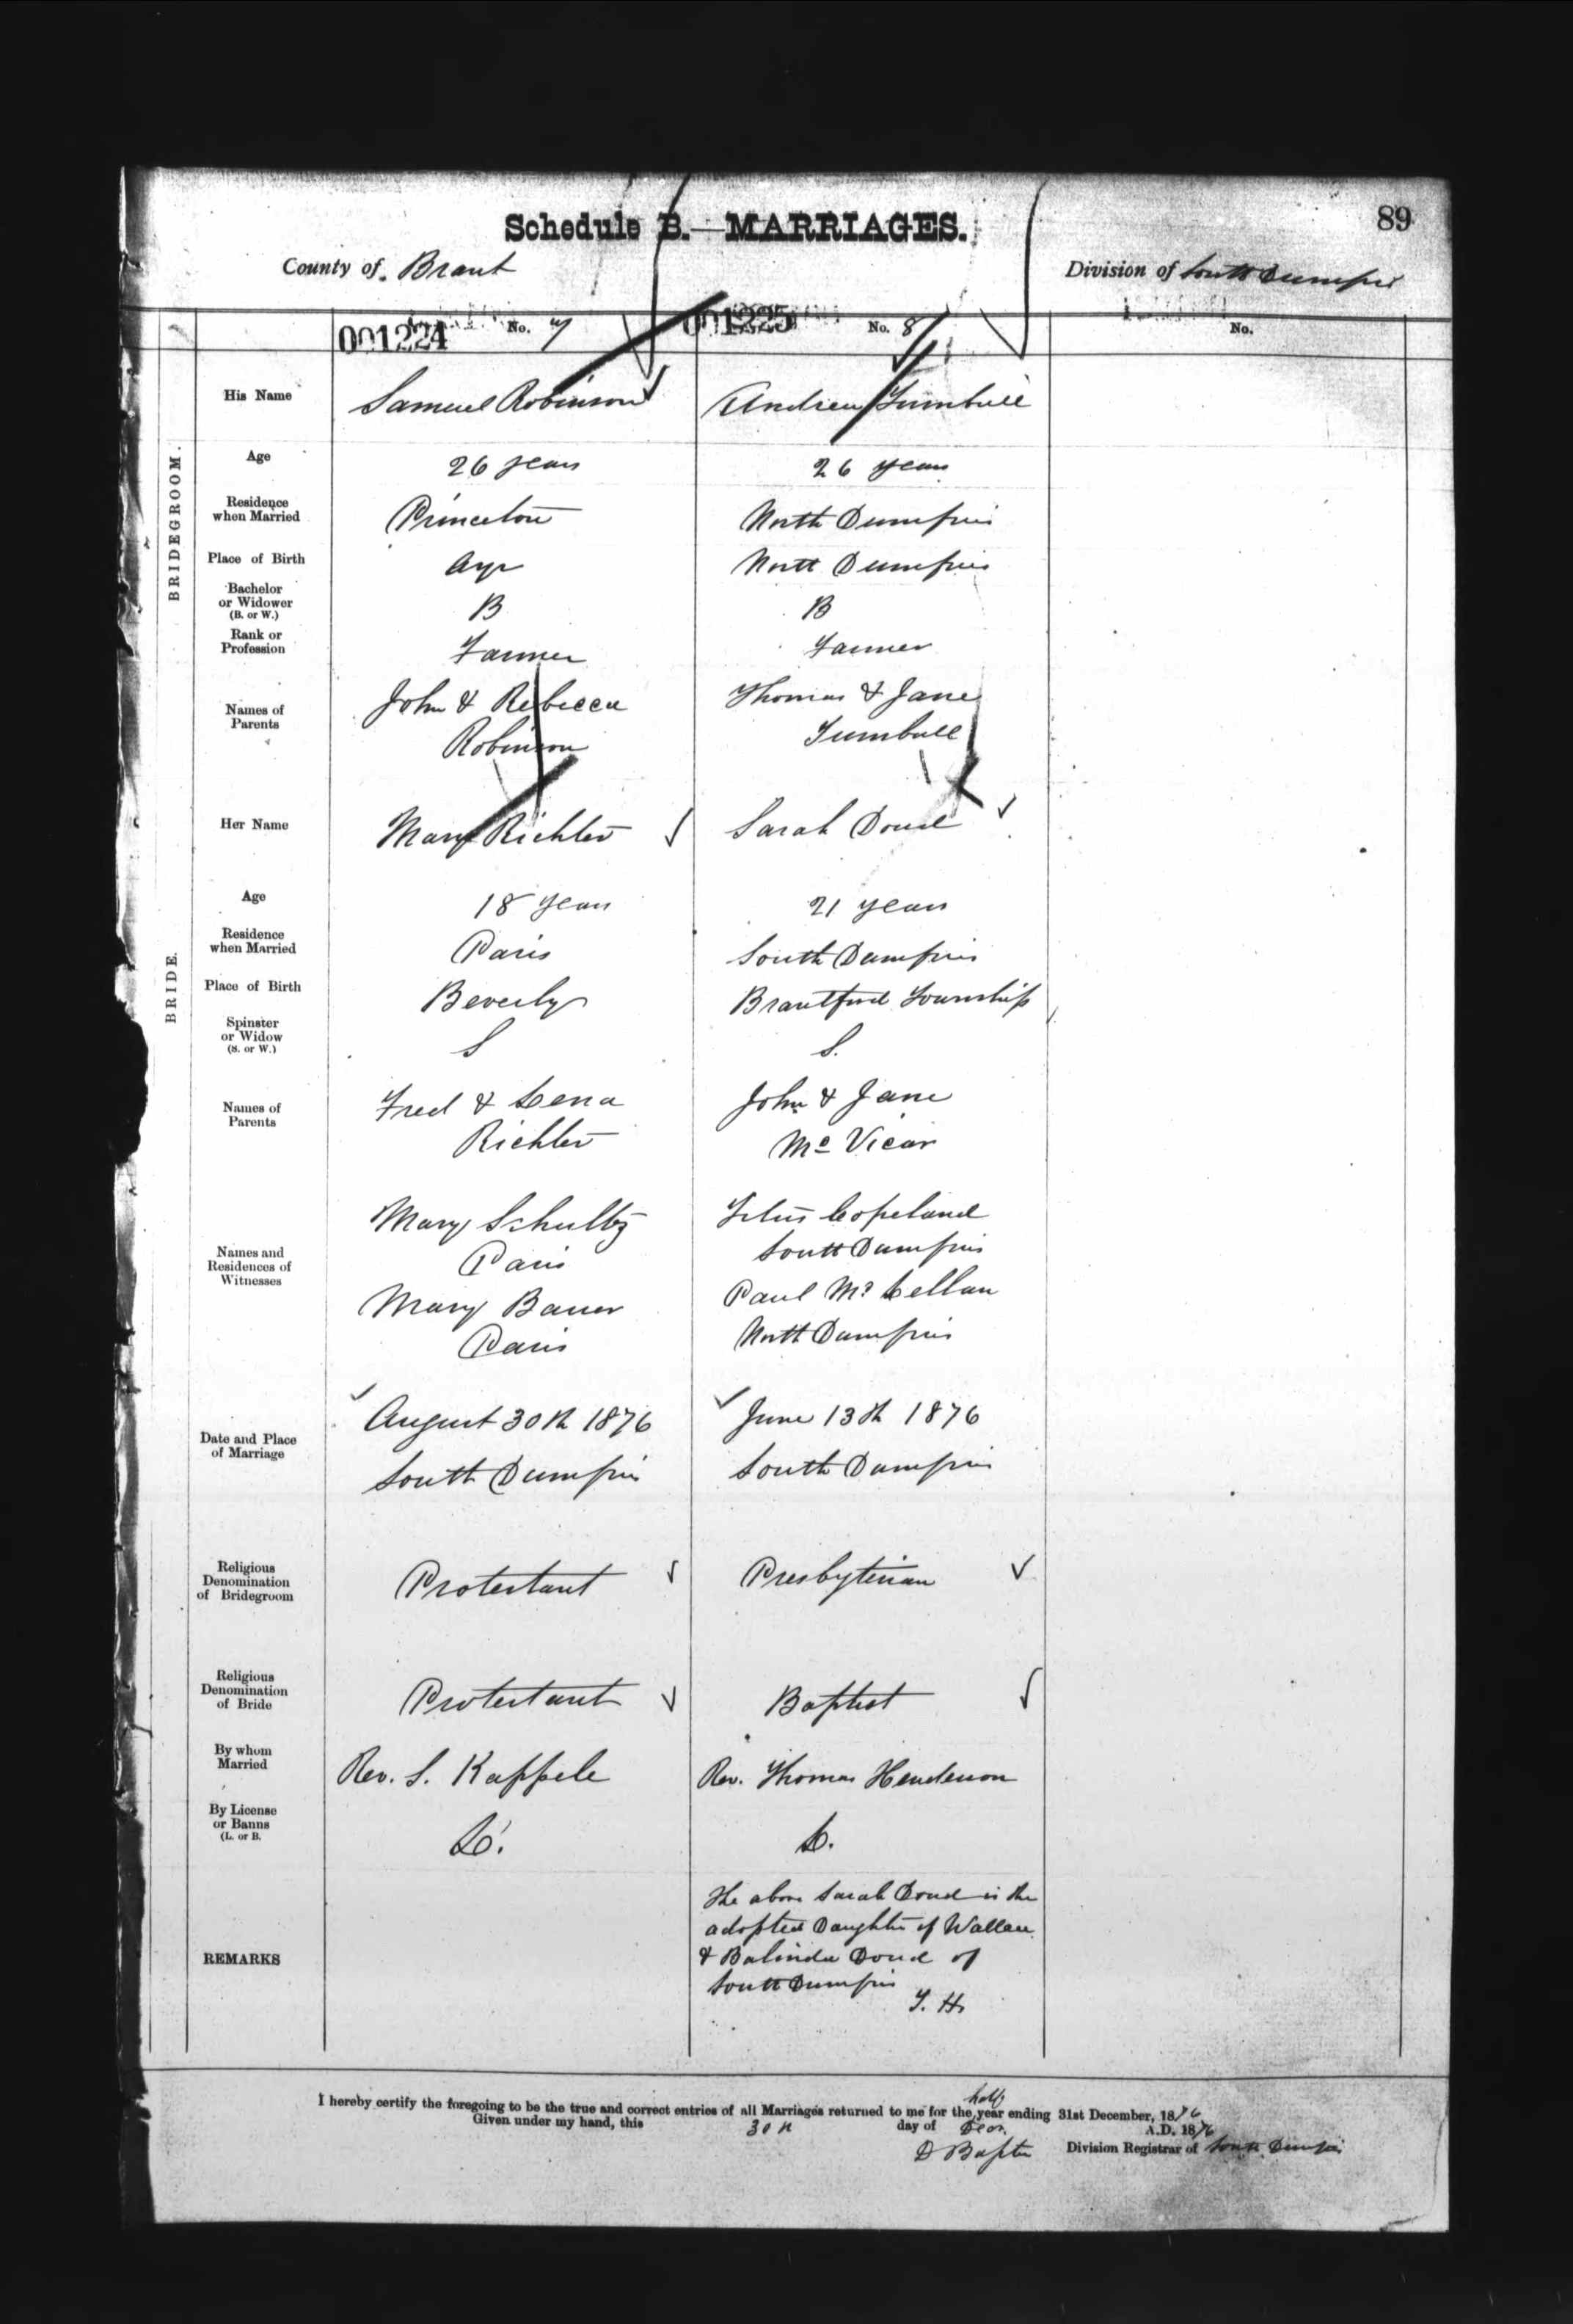 89
Schedule B.—MARRIAGES.
County of Brant
Division of South Dumfries
001224 No. 7
001225 No. 8
No.
BRIDEGROOM.
His Name
Samuel Robinson
Andrew Turnbull
Age
26 years
26 years
Residence
when Married
Princeton
North Dumfries
Place of Birth
Ayr
North Dumfries
Bachelor
or Widower
(B. or W.)
B
B
Rank or
Profession
Farmer
Farmer
Names of
Parents
John & Rebecca
Robinson
Thomas & Jane
Turnbull
BRIDE.
Her Name
Mary Richler
Sarah Doud
Age
18 years
21 years
Residence
when Married
Paris
South Dumfries
Place of Birth
Beverly
Brantford Township
Spinster
or Widow
(S. or W.)
S
S.
Names of
Parents
Fred & Lena
Richler
John & Jane
Mc Vicar
Names and
Residences of
Witnesses
Mary Schultz
Paris
Mary Bauer
Paris
Titus Copeland
South Dumfries
Paul Mc Lellan
North Dumfries
Date and Place
of Marriage
August 30th 1876
South Dumfries
June 13th 1876
South Dumfries
Religious
Denomination
of Bridegroom
Protestant
Presbyterian
Religious
Denomination
of Bride
Protestant
Baptist
By whom
Married
Rev. S. Kappele
Rev. Thomas Henderson
By License
or Banns
(L. or B.
L.
L.
REMARKS
The above Sarah Doud is the
adopted Daughter of Wallace
& Balinda Doud of
South Dumfries
T. H.
I hereby certify the foregoing to be the true and correct entries of all Marriages returned to me for the half year ending 31st December, 1876
Given under my hand, this 30th day of Decr. A.D. 1876
D Baptie Division Registrar of South Dumfries